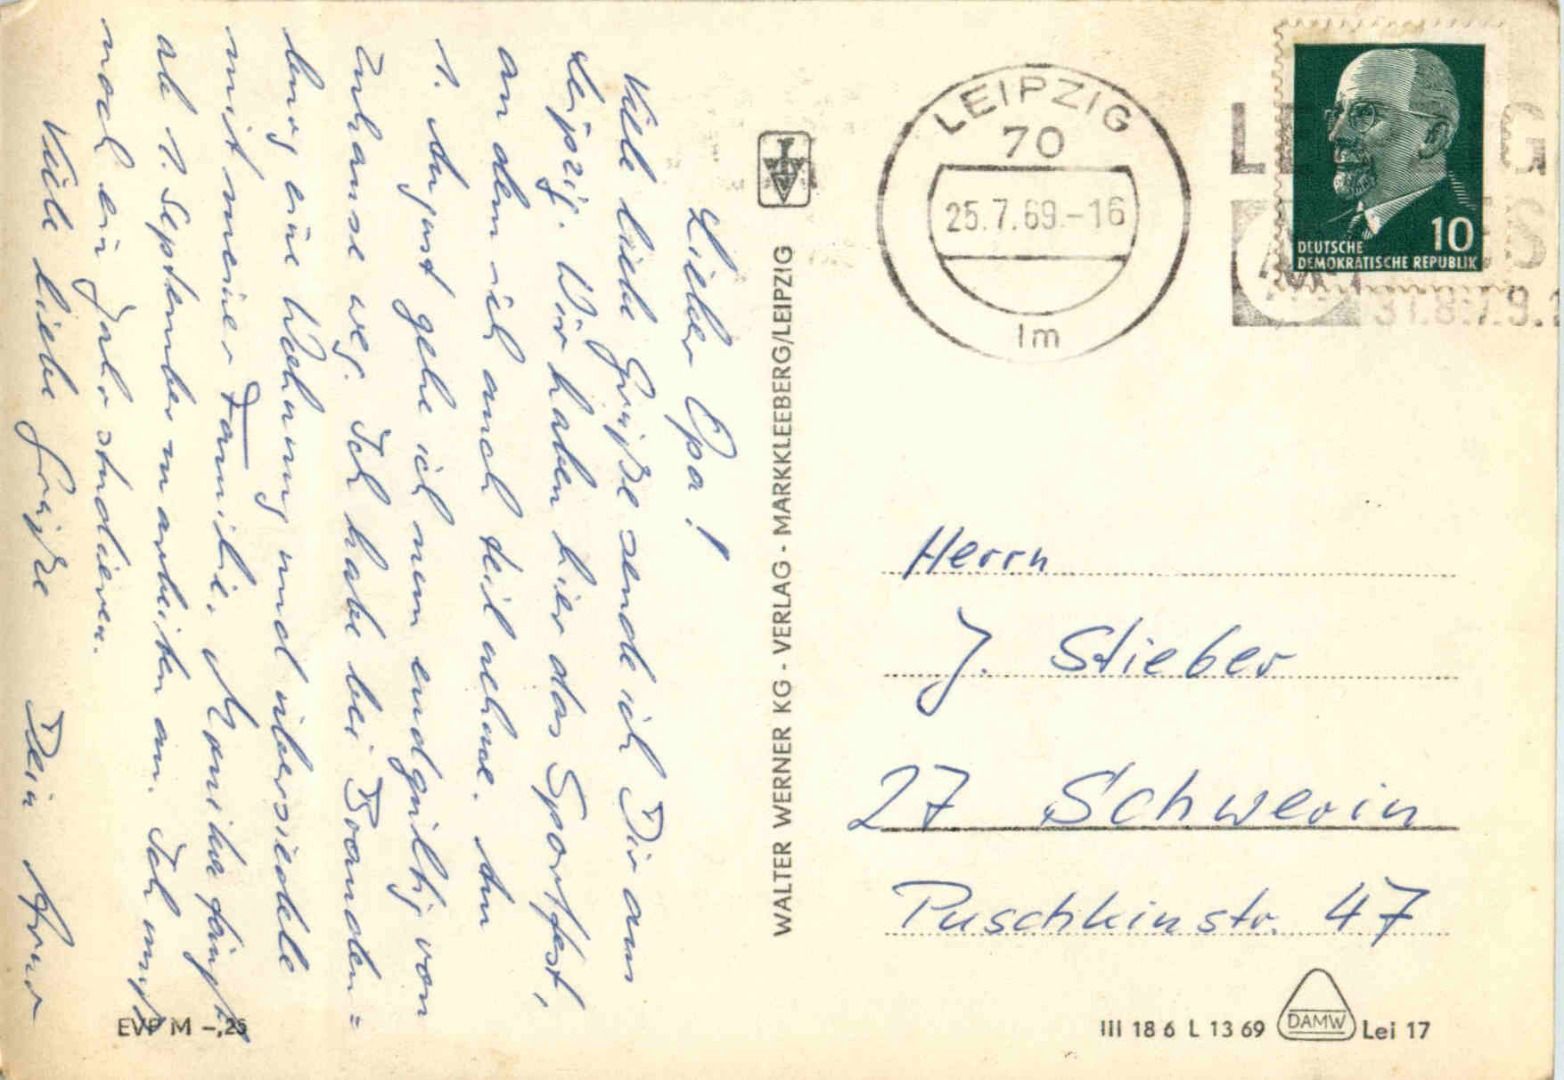 Lieber Opa!
Viele liebe Grüße sende ich Dir aus
Leipzig. Wir haben hier das Sportfest,
an dem ich auch teilnehme. Am
1. August gehe ich nun endgültig von
Zuhause weg. Ich habe bei Branden=
burg eine Wohnung und übersiedle
mit meiner Familie. Monika fängt
ab 1. September zu arbeiten an. Ich muß
noch ein Jahr studieren.
Viele liebe Grüße Dein
EVP M -,25
WALTER WERNER KG - VERLAG - MARKKLEEBERG/LEIPZIG
LEIPZIG
70
25.7.69.-16
lm
31.8.-7.9.1
10
DEUTSCHE
DEMOKRATISCHE REPUBLIK
Herrn
J. Stieber
27 Schwerin
Puschkinstr. 47
III 18 6 L 13 69 DAMW Lei 17